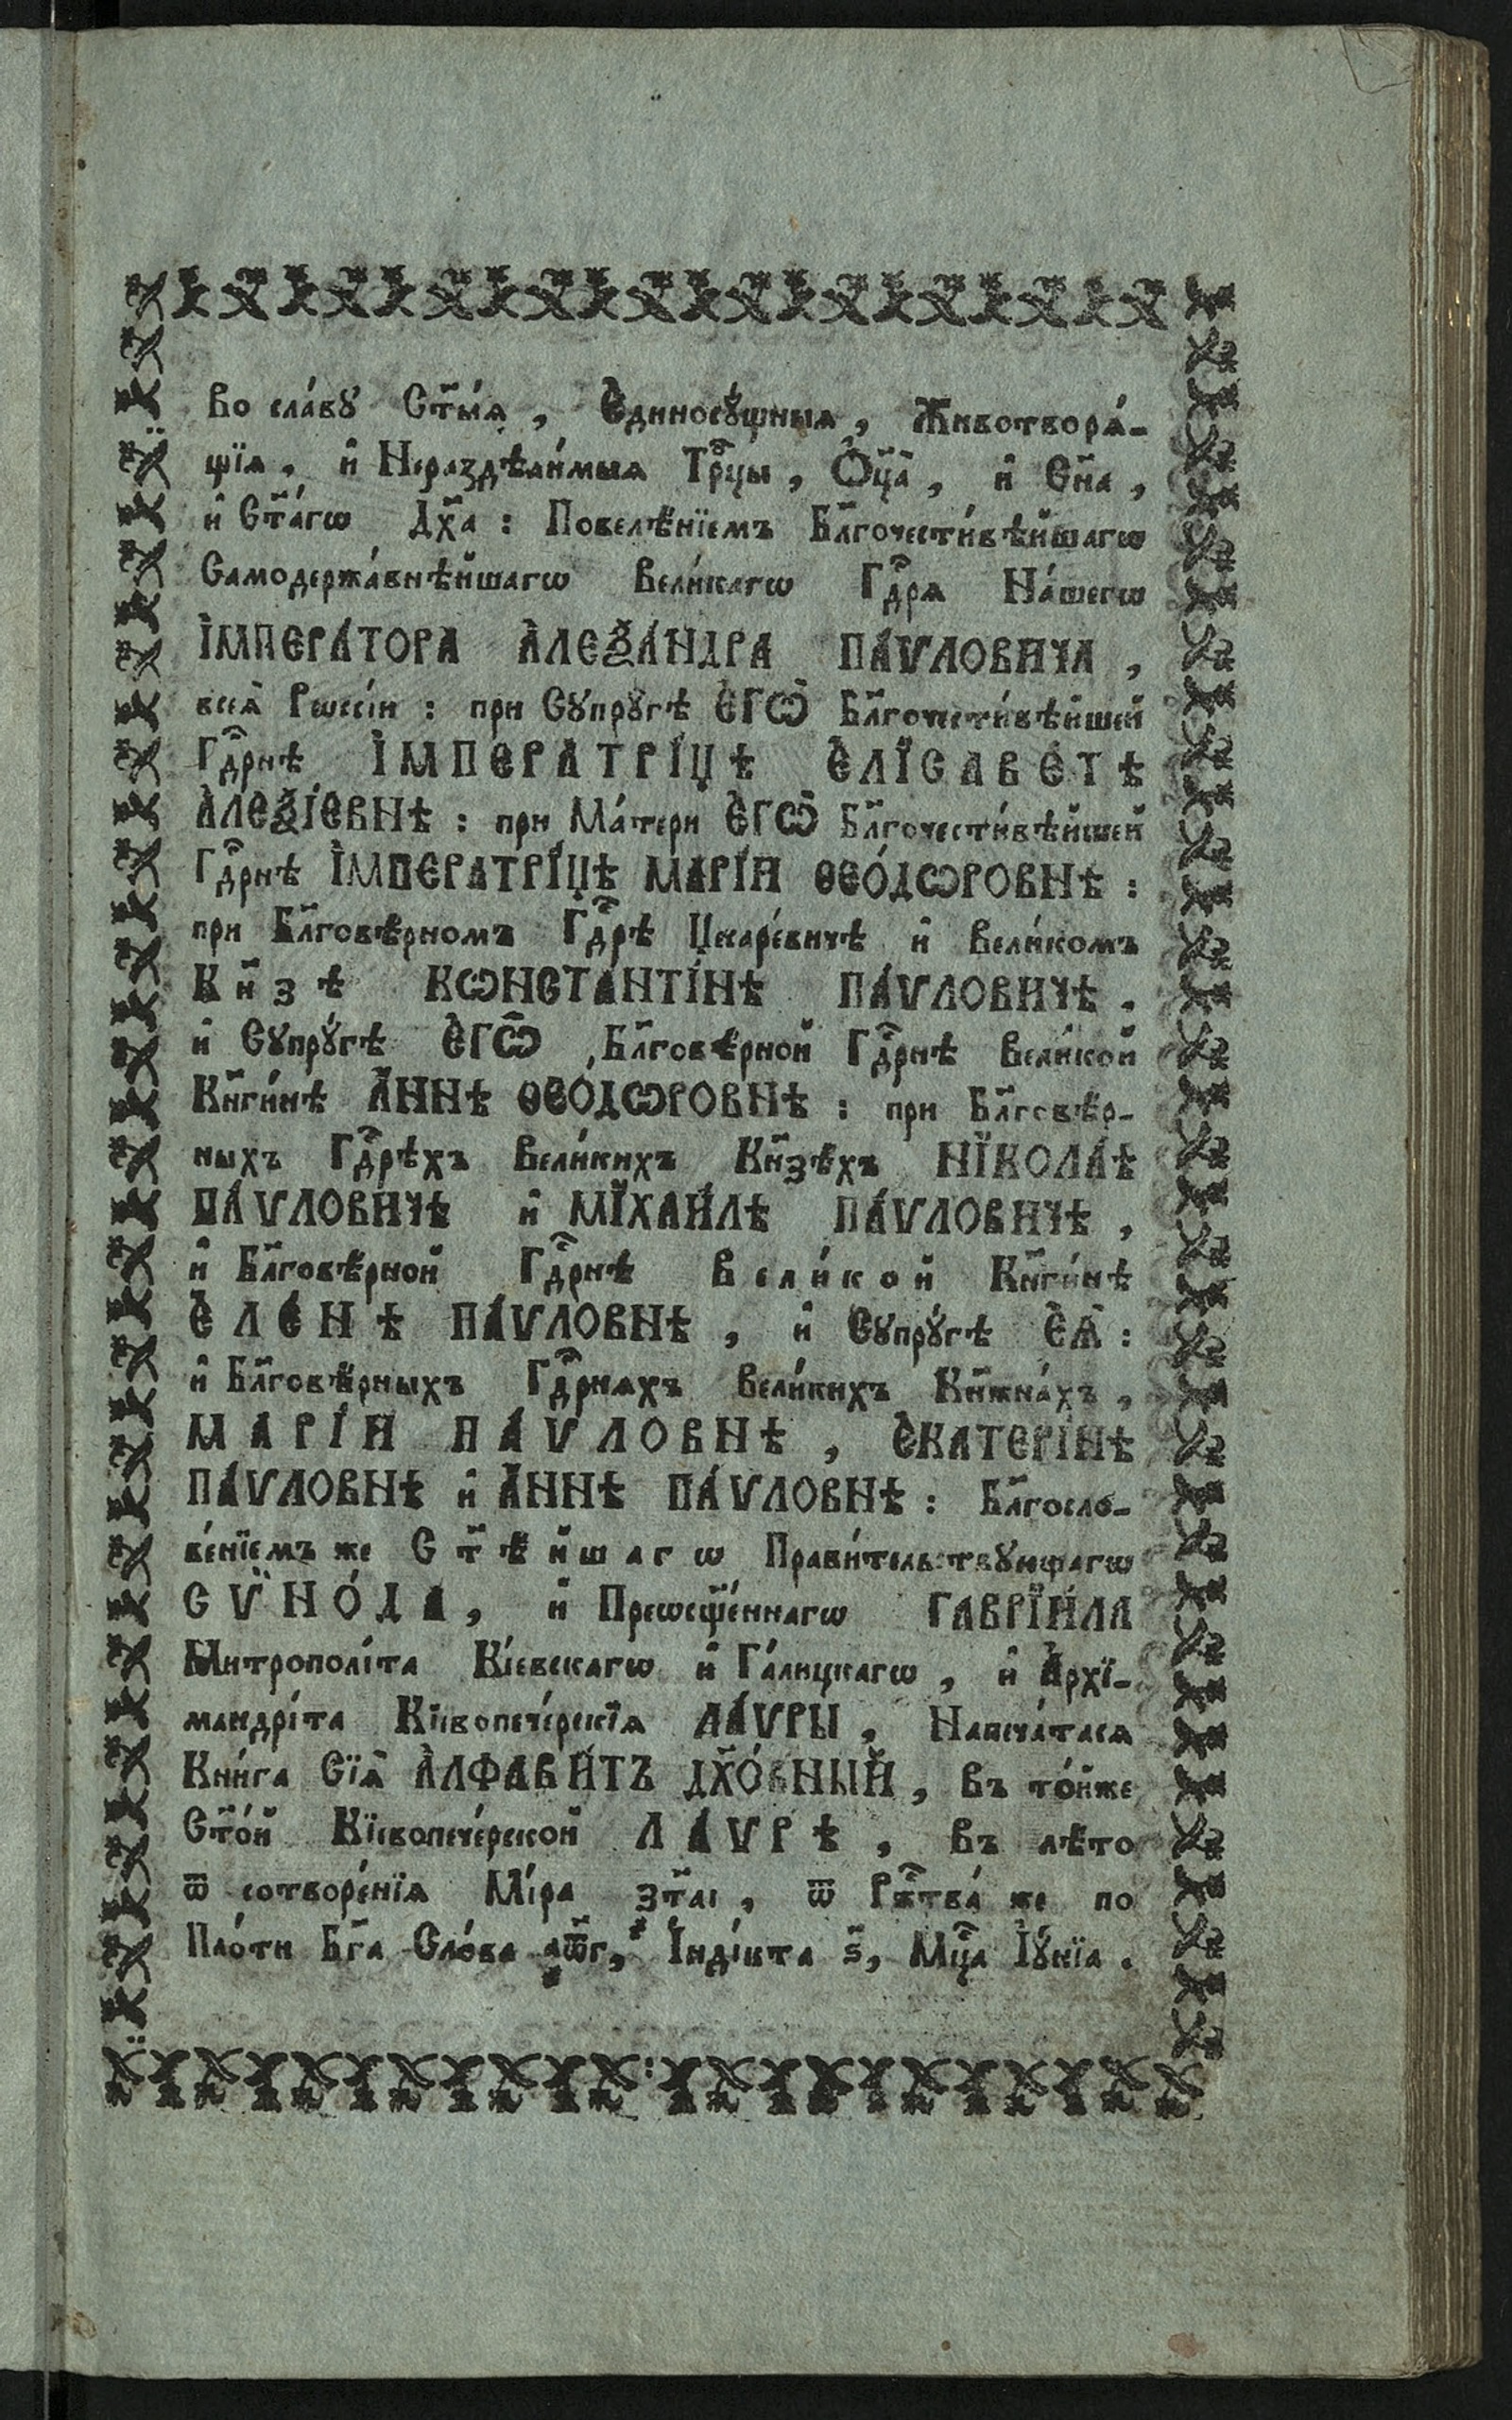 Во сла́вꙋ Ст҃ы́ѧ , Є҆диносꙋ́щныѧ , Животворѧ́-
щїѧ , и҆ Нераздѣли́мыѧ Трⷪ҇цы , Ѻ҆ц҃а̀ , и҆ Сн҃а ,
и҆ Ст҃а́гѡ Дх҃а : Повелѣ́нїемъ Бл҃гочести́вѣйшагѡ
Самодержа́внѣйшагѡ Вели́кагѡ Гдⷭ҇рѧ На́шегѡ
І҆МПЕРА́ТОРА А҆ЛЕѮА́НДРА ПА́ѴЛОВИЧА ,
всеѧ̀ Рѡссі́и : при Сꙋпрꙋ́гѣ Є҆ГѠ̀ Бл҃гочести́вѣйшей
Гдⷭ҇рнѣ І҆МПЕРАТРІ́ЦѢ Є҆ЛЇСАВЕ́ТѢ
А҆ЛЕѮІ́ЕВНѢ : при Ма́тери Є҆ГѠ̀ Бл҃гочести́вѣйшей
Гдⷭ҇рнѣ І҆МПЕРАТРІ́ЦѢ МАРІ́И ѲЕО́ДѠРОВНѢ :
при Бл҃говѣ́рномъ Гдⷭ҇рѣ Цесаре́вичѣ и҆ Вели́комъ
Кн҃зѣ КѠНСТАНТІ́НѢ ПА́ѴЛОВИЧѢ .
и҆ Сꙋпрꙋ́гѣ Є҆ГѠ̀ , Бл҃говѣ́рной Гдⷭ҇рнѣ Вели́кой
Кн҃ги́нѣ А҆́ННѢ ѲЕО́ДѠРОВНѢ : при Бл҃говѣ́р-
ныхъ Гдⷭ҇рѣхъ Вели́кихъ Кн҃зѣхъ НЇКОЛА́Ѣ
ПА́ѴЛОВИЧѢ и҆ МЇХАИ́ЛѢ ПА́ѴЛОВИЧѢ ,
и҆ Бл҃говѣ́рной Гдⷭ҇рнѣ Вели́кой Кн҃ги́нѣ
Є҆ЛЕ́НѢ ПА́ѴЛОВНѢ , и҆ Сꙋпрꙋ́гѣ Є҆Ѧ̀ :
и҆ Бл҃говѣ́рныхъ Гдⷭ҇рнѧхъ Вели́кихъ Кн҃жна́хъ ,
МАРІ́И ПА́ѴЛОВНѢ , Є҆КАТЕРІ́НѢ
ПА́ѴЛОВНѢ и҆ А҆́ННѢ ПА́ѴЛОВНѢ : Бл҃госло-
ве́нїемъ же Ст҃ѣ́йшагѡ Прави́тельствꙋющагѡ
СѴ̈НО́ДА , и҆ Преѡсщ҃е́ннагѡ ГАВРЇИ́ЛА
Митрополі́та Кі́евскагѡ и҆ Га́лицкагѡ , и҆ А҆рхї-
мандрі́та Кїевопече́рскїѧ ЛА́ѴРЫ , Напеча́тасѧ
Кни́га Сїѧ̀ А҆ЛФАВИ́ТЪ ДХ҃О́ВНЫЙ , въ то́йже
Ст҃о́й Кїевопече́рской ЛА́ѴРѢ , въ лѣ́то
ѿ сотворе́нїѧ Мі́ра ҂зт҃аі , ѿ Ржⷭ҇тва́ же по
Пло́ти Бг҃а Сло́ва ҂аѿ҃г , І҆нді́кта ѕ҃ , Мцⷭ҇а І҆ꙋ́нїа .